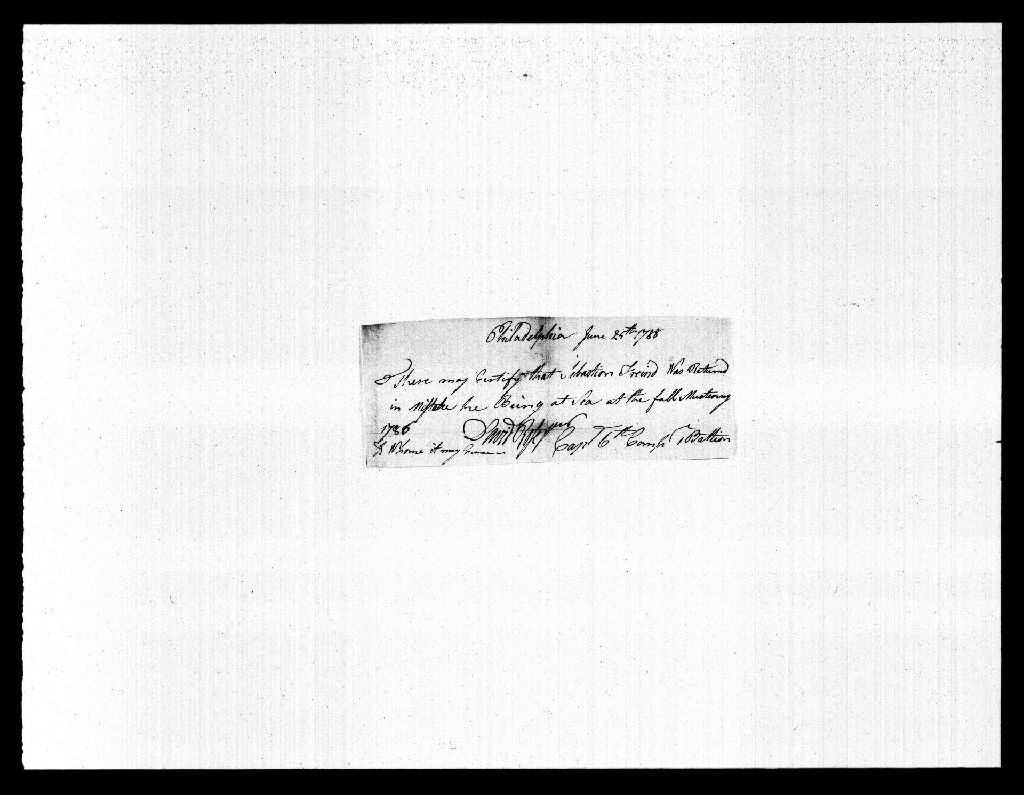 Philadelphia June 25th 1788
I There may Certify that Sebastion Freind Was Returnd
in Mistake he Being at Sea at the fall Mustering
1786
David Capt 6th Comp 1 Battlion
To Whome it may